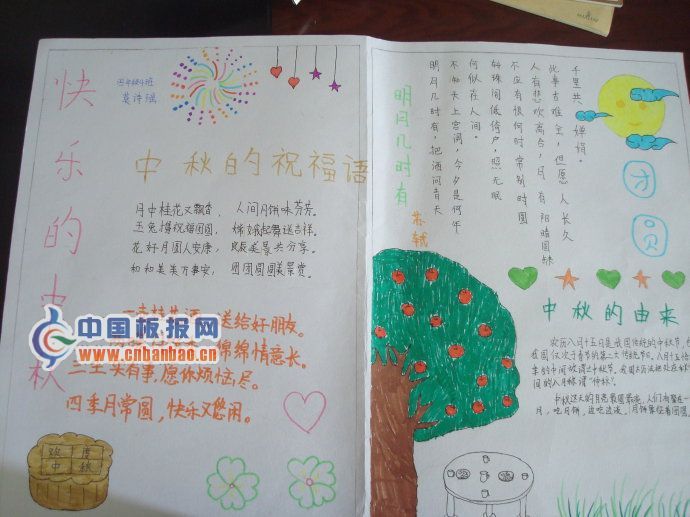 快乐的中秋
四年级4班
中秋的祝福语
月中桂花又飘香，人间月饼味芬芳。
玉兔捧祝福团圆，嫦娥起舞送吉祥。
花好月圆人安康，良辰美景共分享。
和和美美万事安，团团圆圆美景赏。
送给好朋友。
绵绵情意长。
有事，愿你烦恼尽。
四季月常圆，快乐又悠闲。
欢度
中秋
中国板报网
www.cnbanbao.cn
明月几时有
苏轼
明月几时有，把酒问青天
不知天上宫阙，今夕是何年
何似在人间。
转珠阁低绮户，照无眠
不应有恨何时常别时圆
人有悲欢离合，月有阴晴圆缺
此事古难全，但愿人长久
千里共婵娟。
团圆
中秋的由来
农历八月十五日是我国传统的中秋节，也
我国仅次于春节的第二大传统节日。八月十五恰
季的中间故谓之中秋节。我国古历法把处在秋
间的八月称谓“仲秋”。
中秋这天的月亮最圆最亮，人们有聚在一
月，吃月饼，边吃边谈，月饼象征着团圆。